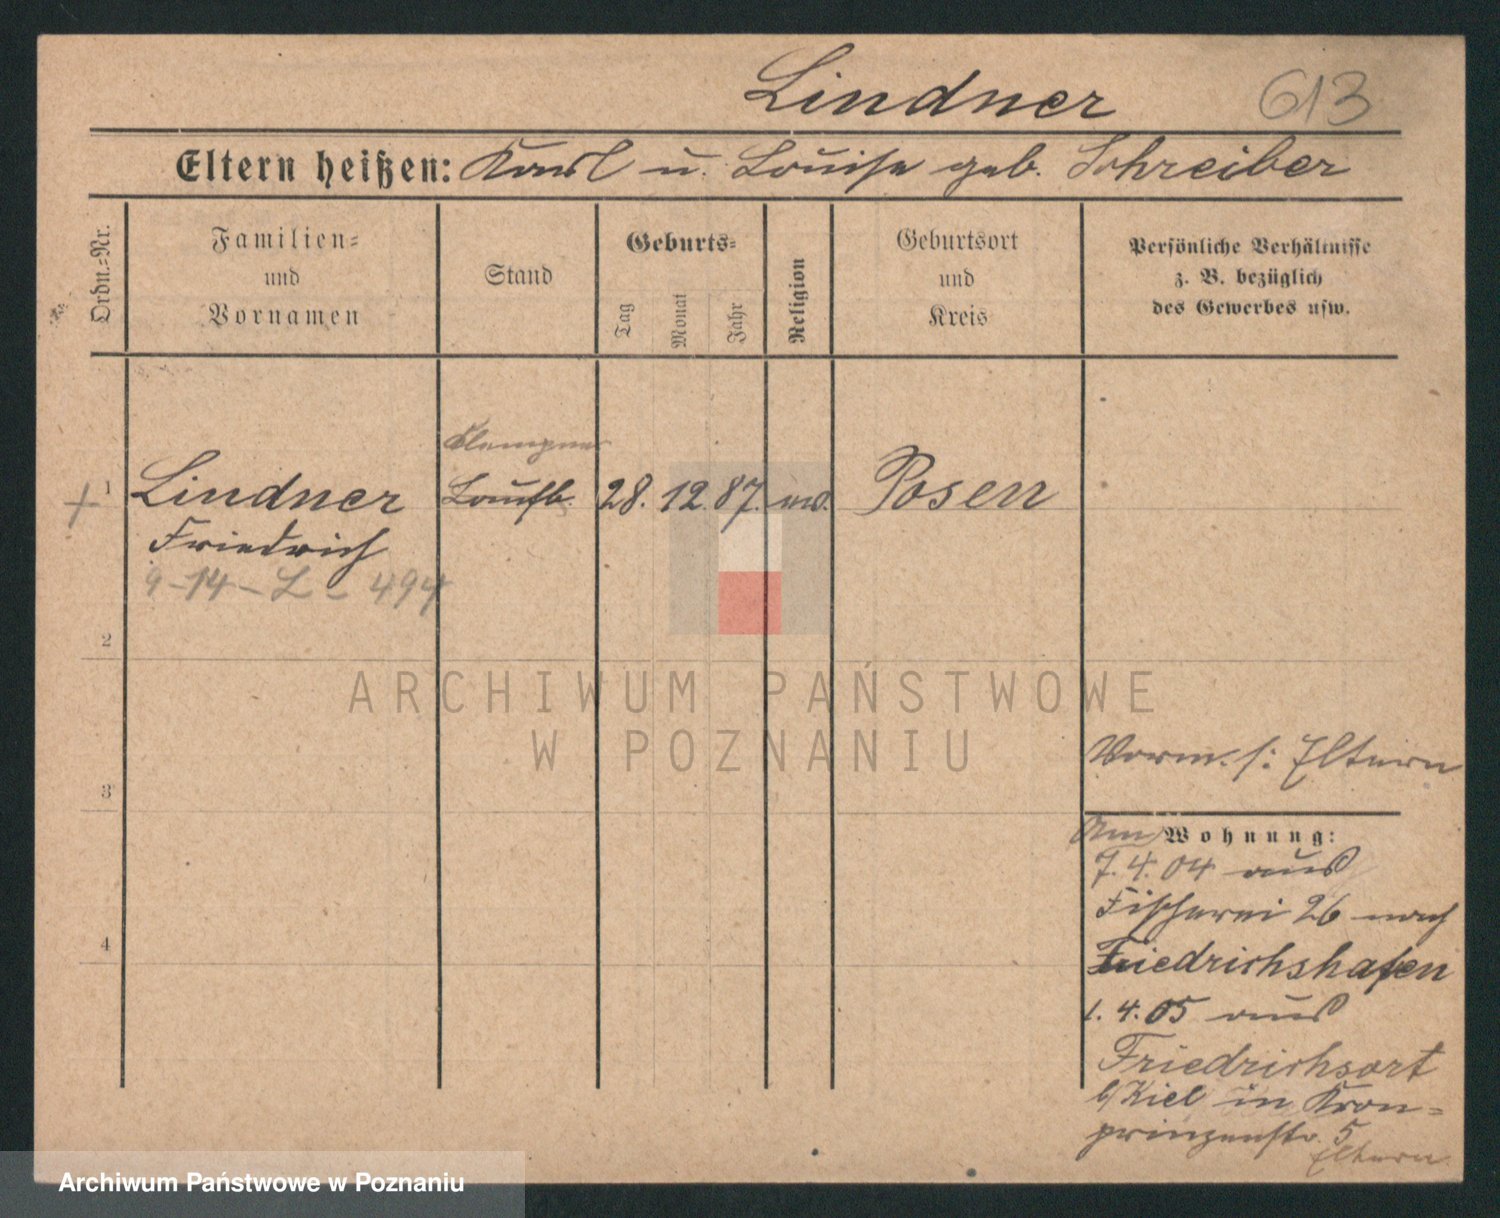 Lindner 613
Eltern heißen: Karl u. Louise geb. Schreiber
Ordn.-Nr.
Familien-
und
Vornamen
Stand
Geburts-
Tag
Monat
Jahr
Religion
Geburtsort
und
Kreis
Persönliche Verhältnisse
z. B. bezüglich
des Gewerbes usw.
Klempner
+ 1 Lindner Laufb. 28. 12. 87. Posen
Friedrich
9-14-L-494
2
ARCHIWUM PAŃSTWOWE
W POZNANIU
3
4
Vorm. s: Eltern
Am Wohnung:
7. 4. 04 aus
Fischerei 26 nach
Friedrichshafen
1. 4. 05 aus
Friedrichsort
b/Kiel in Kron-
prinzenstr. 5
Eltern
Archiwum Państwowe w Poznaniu